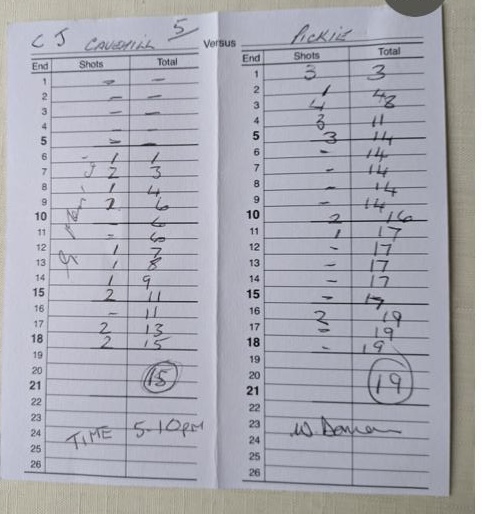 C J CAUDHILL 5 Versus PICKIE
End Shots Total End Shots Total
1 - - 1 3 3
2 - - 2 1 4
3 - - 3 4 8
4 - - 4 3 11
5 - - 5 3 14
6 1 1 6 - 14
7 2 3 7 - 14
8 1 4 8 - 14
9 2 6 9 - 14
10 - 6 10 2 16
11 - 6 11 1 17
12 1 7 12 - 17
13 1 8 13 - 17
14 1 9 14 - 17
15 2 11 15 - 17
16 - 11 16 2 19
17 2 13 17 - 19
18 2 15 18 - 19
19 19
20 15 20 19
21 21
22 22
23 23
24 TIME 5-10PM 24
25 25
26 26